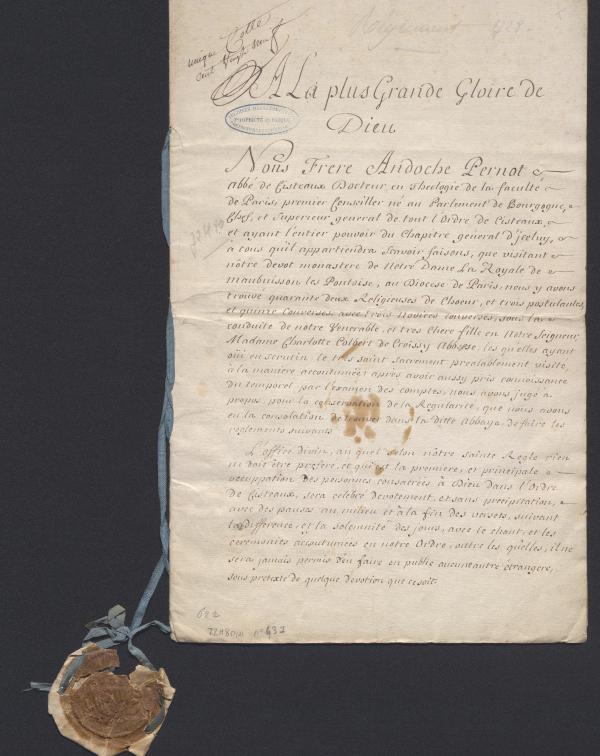 Règlement 1728.
unique Cotte
cent vingt neuf
A La plus Grande Gloire de
Dieu
PROPRIÉTÉ PUBLIQUE
Nous Frere Andoche Pernot
abbé de Cisteaux Docteur en Theologie de la faculté
de Paris, premier Conseiller né au Parlement de Bourgogne,
Chef, et Superieur general de tout l'Ordre de Cisteaux,
et ayant l'entier pouvoir du Chapitre general d'jceluy,
à tous qu'il appartiendra Scavoir faisons, que visitant
nôtre devot monastere de Nôtre Dame La Royale de
Maubuisson les Pontoise, au Diocese de Paris, nous y avons
trouvé quarante deux Religieuses de Choeur, et trois postulantes,
et quinze Converses, avec trois Novices converses, sous la
conduite de notre Venerable, et tres chere fille en Nôtre Seigneur,
Madame Charlotte Colbert de Croissy Abbesse, les quelles ayant
oüi en scrutin, le tres saint Sacrement prealablement visité,
à la maniere accoutumée; après avoir aussy pris connoissance
du temporel par l'examen des comptes, nous avons jugé à
propos pour la conservation de la Regularité, que nous avons
eu la consolation de trouver dans la ditte Abbaye, de faire les
reglements suivants.
L'office divin, au quel selon nôtre sainte Regle rien
ni doit être preferé, et qui est la premiere, et principale
occupation des personnes consacrées à Dieu dans l'Ordre
de Cisteaux, sera celebré devotement, et sans precipitation,
avec des pauses au milieu et à la fin des versets, suivant
la difference, et la solemnité des jours, avec le chant, et les
ceremonies accoutumées en notre Ordre, outre les qu'elles, il ne
sera jamais permis d'en faire en public aucun autre étrangere,
sous pretexte de quelque devotion que ce soit.
622
72H80 n° 437